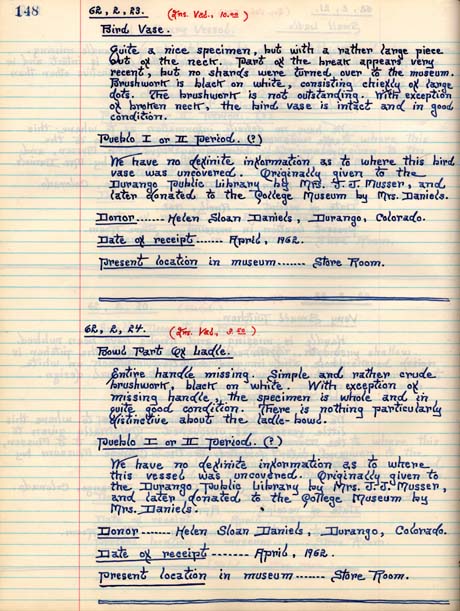 148
62, 2, 23. (Ins. Val., 10.00)
Bird Vase.
Quite a nice specimen, but with a rather large piece
out of the neck. Part of the break appears very
recent, but no shards were turned over to the museum.
Brushwork is black on white, consisting chiefly of large
dots. The brushwork is not outstanding. With exception
of broken neck, the bird vase is intact and in good
condition.
Pueblo I or II Period. (?)
We have no definite information as to where this bird
vase was uncovered. Originally given to the
Durango Public Library by Mrs. J. J. Musser, and
later donated to the College Museum by Mrs. Daniels.
Donor ------- Helen Sloan Daniels, Durango, Colorado.
Date of receipt ------- April, 1962.
Present location in museum ------- Store Room.
62, 2, 24. (Ins. Val., .50)
Bowl Part Of Ladle.
Entire handle missing. Simple and rather crude
brushwork, black on white. With exception of
missing handle, the specimen is whole and in
quite good condition. There is nothing particularly
distinctive about the ladle-bowl.
Pueblo I or II Period. (?)
We have no definite information as to where
this vessel was uncovered. Originally given to
the Durango Public Library by Mrs. J. J. Musser,
and later donated to the College Museum by
Mrs. Daniels.
Donor ------- Helen Sloan Daniels, Durango, Colorado.
Date of receipt -------- April, 1962.
Present location in museum ------- Store Room.